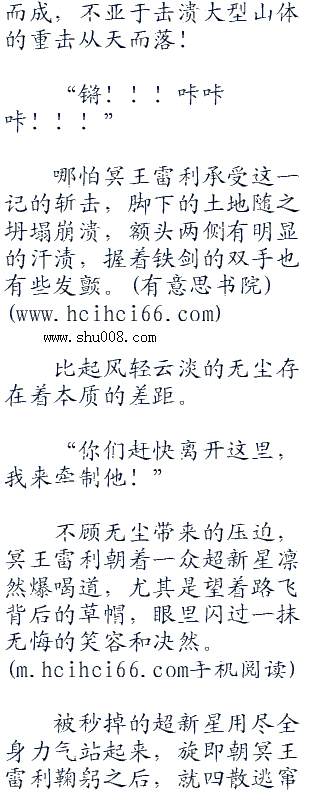 而成，不亚于击溃大型山体
的重击从天而落！
“锵！！！咔咔
咔！！！”
哪怕冥王雷利承受这一
记的斩击，脚下的土地随之
坍塌崩溃，额头两侧有明显
的汗渍，握着铁剑的双手也
有些发颤。(有意思书院)
(www.hcihci66.com)
www.shu008.com
比起风轻云淡的无尘存
在着本质的差距。
“你们赶快离开这里，
我来牵制他！”
不顾无尘带来的压迫，
冥王雷利朝着一众超新星凛
然爆喝道，尤其是望着路飞
背后的草帽，眼里闪过一抹
无悔的笑容和决然。
(m.hcihci66.com手机阅读)
被秒掉的超新星用尽全
身力气站起来，旋即朝冥王
雷利鞠躬之后，就四散逃窜